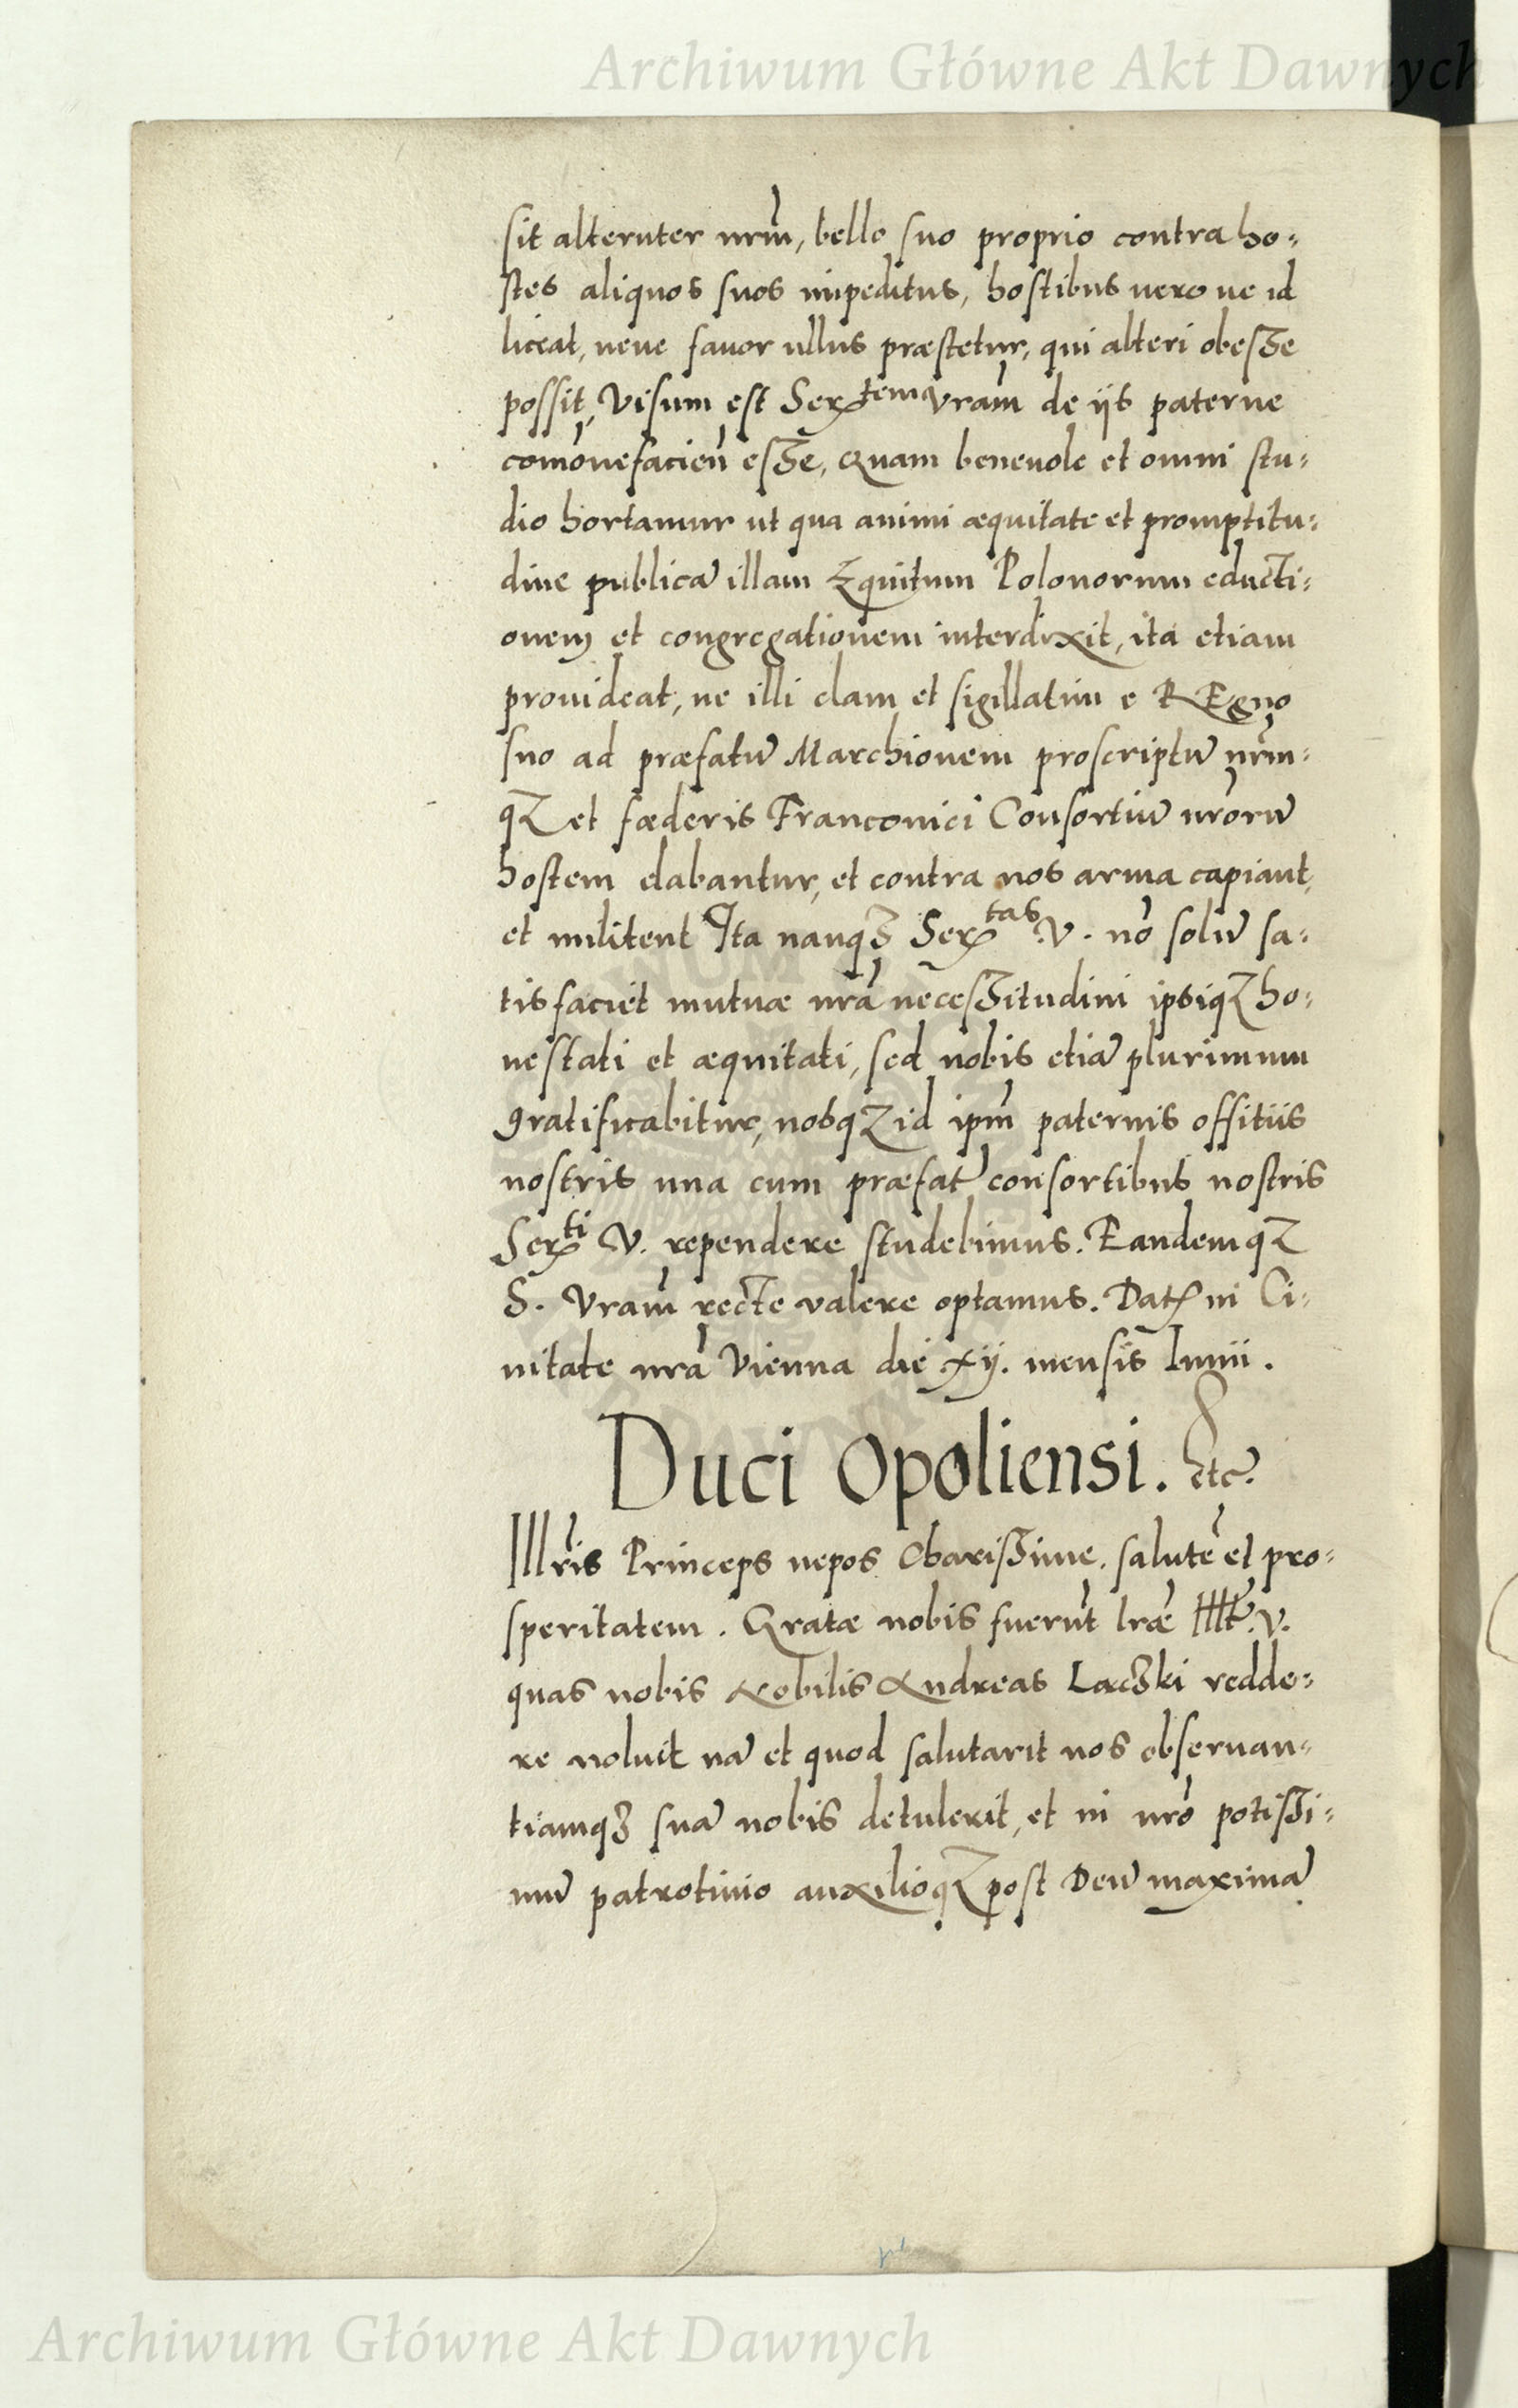 Archiwum Główne Akt Dawnych
sit alteruter nrm̃, bello suo proprio contra ho-
stes aliquos suos impeditus, hostibus vero ne id
liceat, neve favor ullus præstetur, qui alteri obesse
possit, Visum est Ser.tem vram̃ de ijs paterne
com̃onefacien̄ esse, Quam benevole et omni stu-
dio hortamur ut qua animi æquitate et promptitu-
dine publicā illam Equitum Polonorum educti-
onem et congregationem interdixit, ita etiam
provideat, ne illi clam et sigillatim e REgno
suo ad præfatū Marchionem proscriptū nr̃m-
q; et fœderis Franconici Consortiū nrorū
hostem elabantur, et contra nos arma capiant,
et militent Ita nanq; Ser.tas V. nō solū sa-
tisfaciet mutuæ nrã necessitudini ipsiq; ho-
nestati et æquitati, sed nobis etiā plurimum
gratificabitur, nobsq; id ipm̃ paternis offitiis
nostris una cum præfat̃ consortibus nostris
Ser.ti V. rependere studebimus. Eandemq;
S. Vram̃ recte valere optamus. Dat. in Ci-
vitate nrã Vienna die xij. mensis Iunii.
Duci Opoliensi. etc.
Illr̃is Princeps nepos Charissime, salutē et pro-
speritatem. Gratæ nobis fuerūt lræ̃ Illt. V.
quas nobis Nobilis Andreas Laczki redde-
re voluit nā et quod salutarit nos observan-
tiamq; suā nobis detulerit, et in nrõ potissi-
mū patrotinio auxilioq; post Deū maximā
Archiwum Główne Akt Dawnych